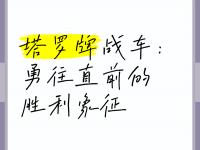 塔罗牌战车:
勇往直前的
胜利象征